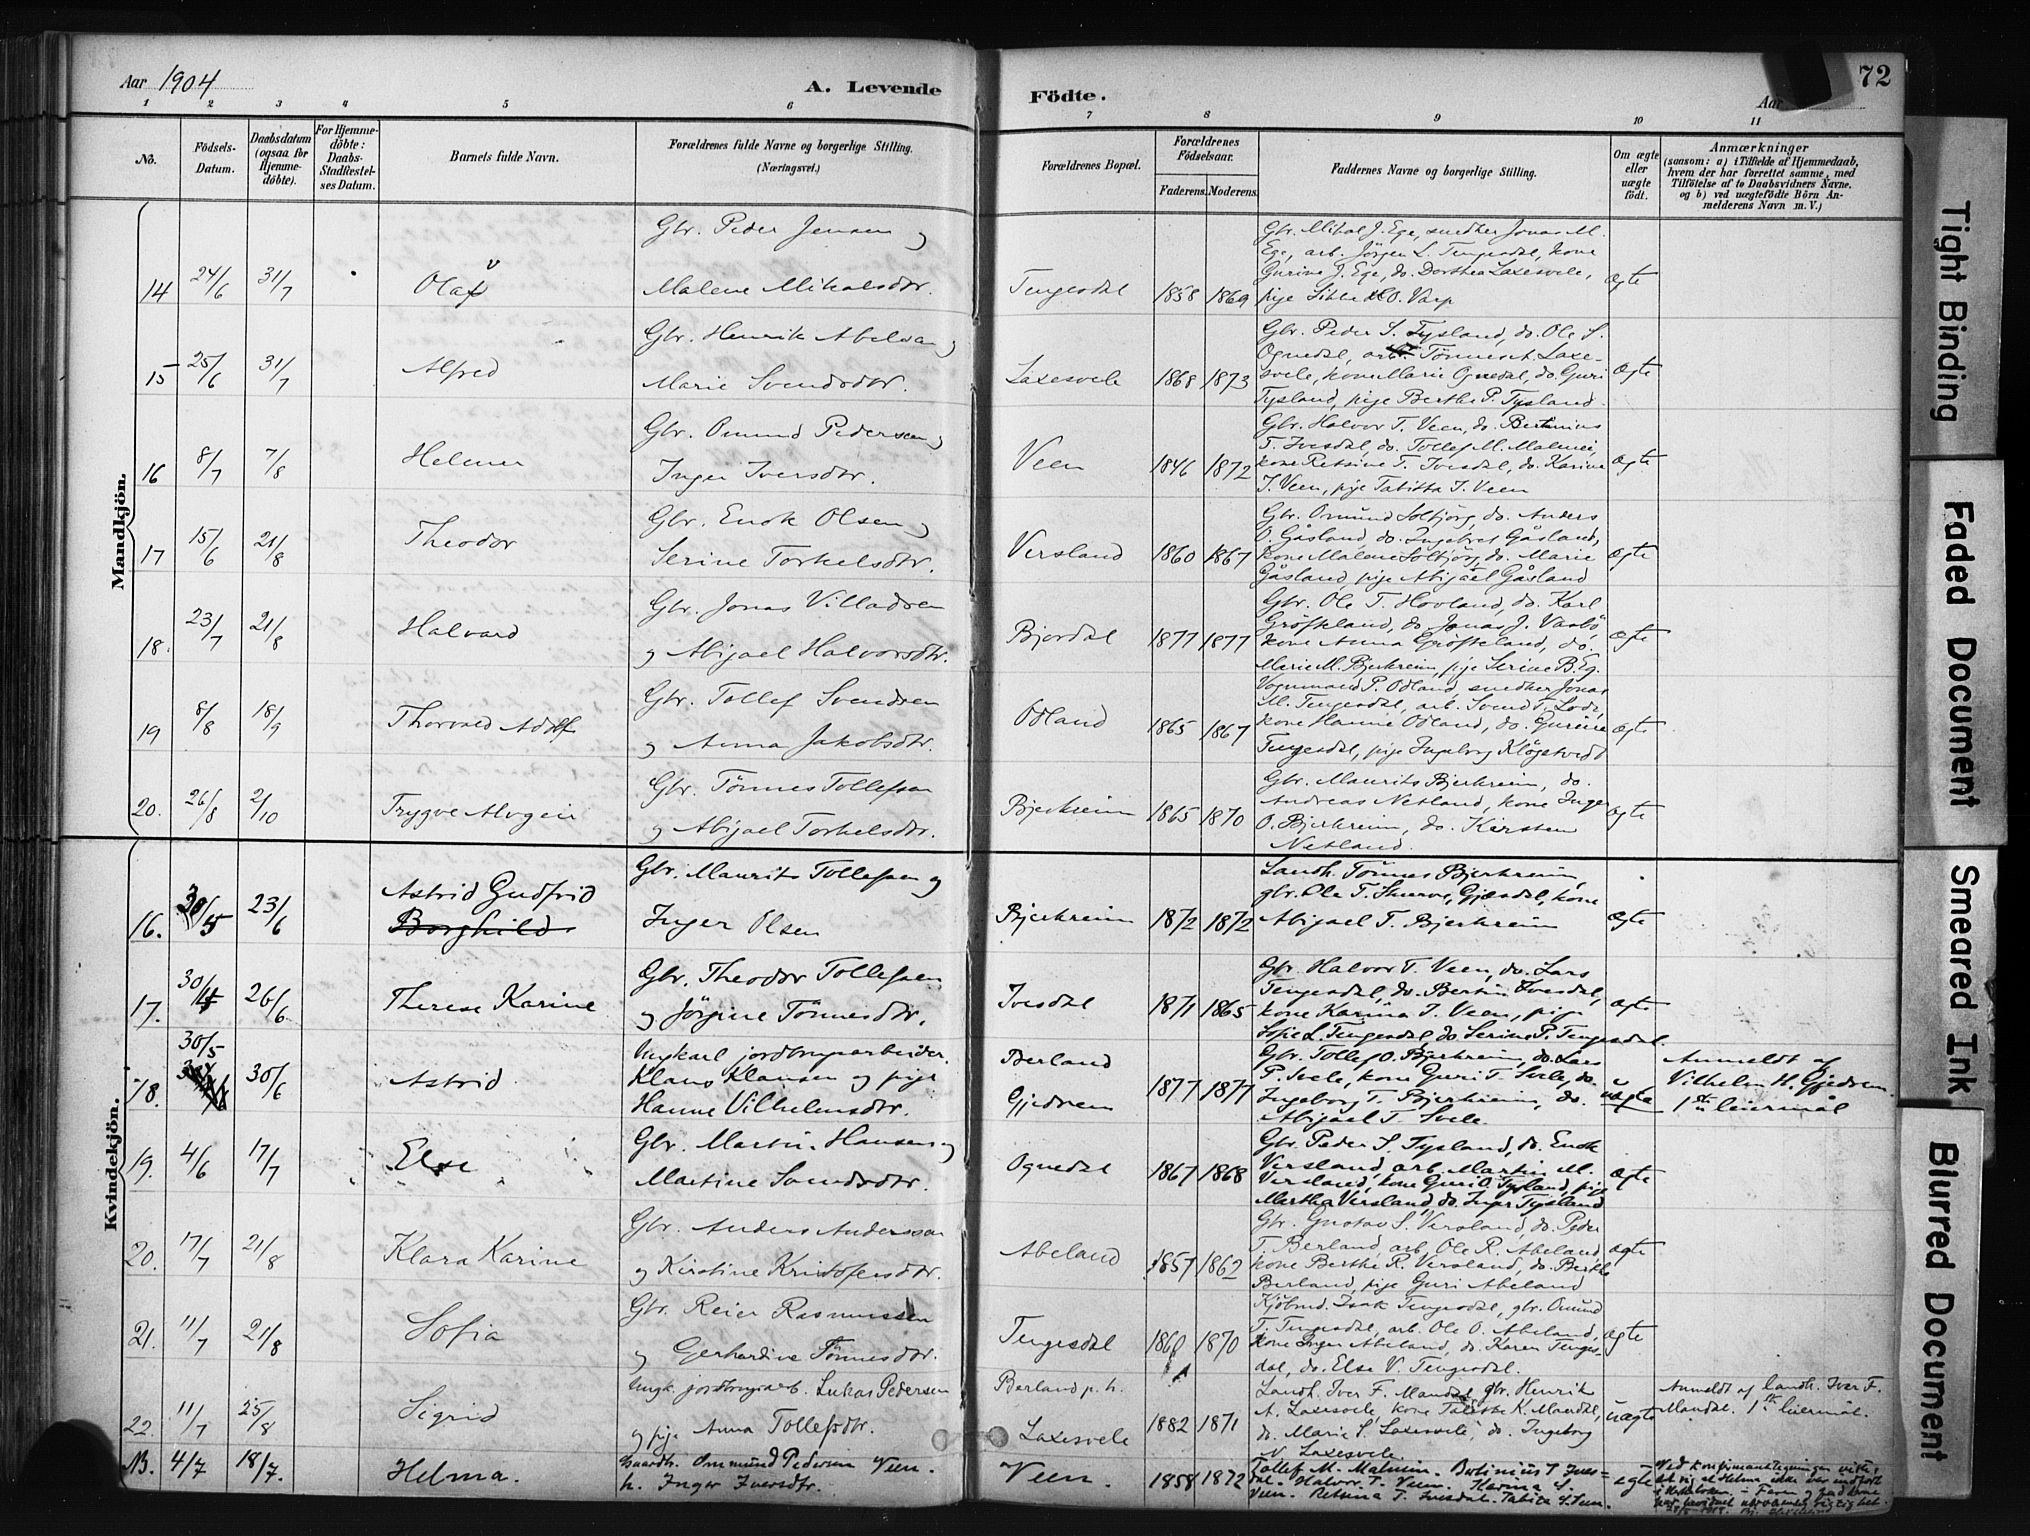 Aar 1904
A. Levende
Födte.
Aar
72
1 2 3 4 5 6 7 8 9 10 11
No.
Födsels-Datum.
Daabsdatum (ogsaa for Hjemme-döbte).
For Hjemme-döbte: Daabs-Stadfæstelses Datum.
Barnets fulde Navn.
Forældrenes fulde Navne og borgerlige Stilling. (Næringsvei.)
Forældrenes Bopæl.
Forældrenes Födselsaar.
Faderens. Moderens.
Faddernes Navne og borgerlige Stilling.
Om ægte eller uægte födt.
Anmærkninger
(saasom: a) i Tilfælde af Hjemmedaab, hvem der har forrettet samme, med Tilföielse af to Daabsvidners Navne, og b) ved uægtefödte Börn Anmelderens Navn m. V.)
Mandkjön.
14 24/6 31/7 Olav
Gbr. Peder Jensen og
Malene Mikalsdtr.
Tengesdal 1858 1869
Gbr. Mikal J. Ege, smedher Jonas M.
Ege, arb. Jörgen L. Tengesdal, kone
Gurine J. Ege, do. Dorthea Laxesvele,
pige Sille O. Varp
ægte
15 25/6 31/7 Alfred
Gbr. Henrik Abelsen og
Marie Svendsdtr.
Laxesvele 1868 1873
Gbr. Peder S. Tysland, do. Ole S.
Ognedal, arb. Tönnes Laxe-
svele, kone Marie Ognedal, do. Guri
Tysland, pige Berthe P. Tysland
ægte
16 8/7 7/8 Helmer
Gbr. Omund Pedersen og
Inger Iversdtr.
Veen 1846 1872
Gbr. Halvor T. Veen, do. Bertinius
T. Ivesdal, do. Tollef M. Malmei,
kone Retsine T. Ivesdal, do. Karine
I. Veen, pige Tabitta I. Veen
ægte
17 15/6 21/8 Theodor
Gbr. Enok Olsen og
Serine Torkelsdtr.
Versland 1860 1867
Gbr. Omund Solbjörg, do. Anders
O. Gåsland, do. Ingebret Gåsland,
kone Malene Solbjörg, do. Marie
Gåsland, pige Abigael Gåsland
ægte
18. 23/7 21/8 Halvard
Gbr. Jonas Villadsen
og Abigael Halvorsdtr.
Bjordal 1877 1877
Gbr. Ole T. Hovland, do. Karl
Gröfsland, do. Jonas J. Vasbö,
kone Anna Gröfseland, do.
Marie M. Bjerkreim, pige Serine B. Eg.
ægte
19 8/8 18/9 Thorvald Adolf
Gbr. Tollef Svendsen
og Anna Jakobsdtr.
Odland 1865 1867
Vognmand P. Odland, smedher Jonas
M. Tengesdal, arb. Svend T. Lode,
kone Hanne Odland, do. Gurine
Tengesdal, pige Ingeborg Klögetvedt
ægte
20. 26/8 2/10 Trygve Alvgeir
Gbr. Tönnes Tollefsen
og Abigael Torkelsdtr.
Bjerkreim 1865 1870
Gbr. Maurits Bjerkreim, do.
Andreas Netland, kone Inger
O. Bjerkreim, do. Kirsten
Netland.
ægte
Kvindekjön.
16. 30/5 23/6 Astrid Gudfrid
Borghild
Gbr. Maurits Tollefsen og
Inger Olsen
Bjerkreim 1872 1872
Landh. Tönnes Bjerkreim,
gbr. Ole T. Skurve, Gjesdal, kone
Abigael T. Bjerkreim
ægte
17. 30/4 26/6 Therese Karine
Gbr. Theodor Tollefsen
og Jörgine Tönnesdtr.
Ivesdal 1871 1865
Gbr. Halvor T. Veen, do. Lars
Tengesdal, do. Bertin Ivesdal,
kone Karina I. Veen, pige
Sofie L. Tengesdal, do. Serine P. Tengesdal.
ægte
18. 30/5 30/6 Astrid
Ungkarl jordbrugsarbeider
Klaus Klausen og pige
Hanne Vilhelmsdtr.
Berland
Gjedrem
1877 1877
Gbr. Tollef O. Bjerkreim, do. Lars
P. Svele, kone Guri T. Svele, do.
Ingeborg T. Bjerkreim, do.
Abigael T. Svele
uægte
Anmeldt af
Vilhelm H. Gjedrem.
1ste leiermål
19. 4/6 17/7 Else
Gbr. Martin Hansen og
Martine Svendsdtr.
Ognedal 1867 1868
Gbr. Peder S. Tysland, do. Enok
Versland, arb. Martin M.
Versland, kone Guri O. Tysland, pige
Martha Versland, do. Inger Tysland
ægte
20. 17/7 21/8 Klara Karine
Gbr. Anders Andersen
og Kirstine Kristofersdtr.
Abeland 1857 1862
Gbr. Gustav S. Versland, do. Peder
T. Berland, arb. Ole R. Abeland,
kone Berthe R. Versland, do. Berthe
Berland, pige Guri Abeland
ægte
21. 11/7 21/8 Sofia
Gbr. Reier Rasmussen
og Gerhardine Tönnesdtr.
Tengesdal 1860 1870
Kjöbmd. Isak Tengesdal, gbr. Omund
T. Tengesdal, arb. Ole O. Abeland,
kone Inger Abeland, do. Karen Tenges-
dal, do. Else V. Tengesdal.
ægte
22. 11/7 25/8 Sigrid
Ungk. jordbrugsarb. Lukas Pedersen
og pige Anna Tollefsdtr.
Berland p. h.
Laxesvele
1882 1871
Landh. Iver F. Mandal, gbr. Henrik
A. Laxesvele, kone Tabitha K. Mandal,
do. Marie S. Laxesvele, do. Ingeborg
N. Laxesvele
uægte
Anmeldt af landh. Iver F.
Mandal. 1ste leiermål.
23. 4/7 18/7. Helma.
Gaardbr. Ommund Pedersen Veen.
h. Inger Iversdtr.
Veen 1858 1872
Tollef M. Malmein. Bertinius T. Ives-
dal. Halvor T. Veen. Karina I.
Veen. Retsina T. Ivesdal. Tabita I. Veen.
ægte
Ved konfirmantlegningen viste
det sig at Helma ikke var indført
i kirkeboken. - Faren og fadderne
har bevidnet nærværende rigtighet.
Tight Binding
Faded Document
Smeared Ink
Blurred Document